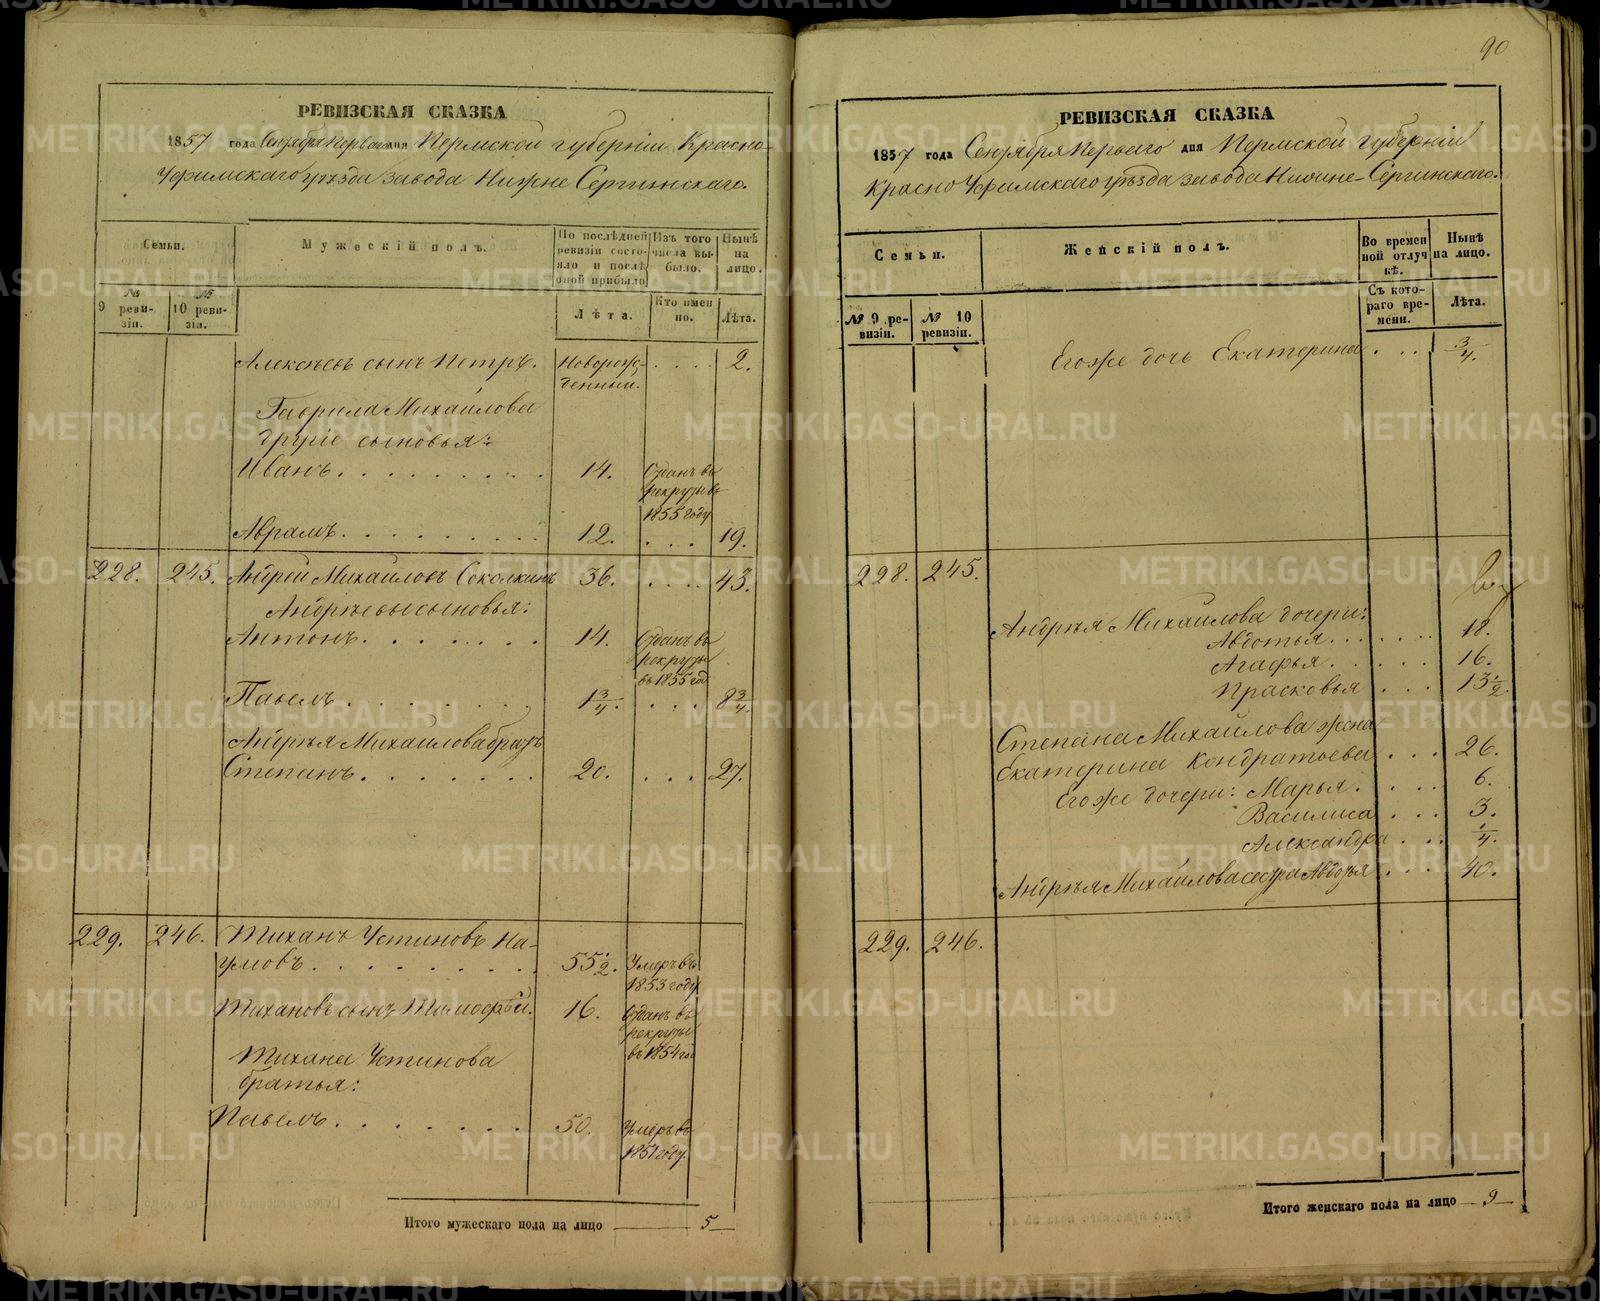 РЕВИЗСКАЯ СКАЗКА
1857 года Сентября первого дня Пермской губерніи, Красно
Уфимскаго уѣзда завода Нижне Сергинскаго.
Семьи.
Мужескій полъ.
По послѣдней ревизіи состояло и послѣ оной прибыло
Изъ того числа выбыло.
Нынѣ на лицо.
№ 9 ревизіи.
№ 10 ревизіи.
Лѣта.
Кто именно.
Лѣта.
Алексѣевъ сынъ Петръ. Новорожденный. . . . . 2.
Гаврила Михайлова
другіе сыновья:
Иванъ . . . . . . . . . 14. Отданъ въ рекруты въ 1855 году
Аврамъ . . . . . . . . . 12. . . . 19.
228. 245. Андрей Михайловъ Соколкинъ 36. . . . . 43.
Андрѣевы сыновья:
Антонъ . . . . . . . 14. Отданъ въ рекруты въ 1855 год
Павелъ . . . . . . . 1 3/4. . . . 8 3/4.
Андрѣя Михайлова братъ
Степанъ . . . . . . . 20. . . . 27.
229. 246. Тиханъ Устиновъ На-
умовъ . . . . . . . . . 55 1/2. Умеръ въ 1853 году
Тихановъ сынъ Тимофѣй. 16. Отданъ въ рекруты въ 1854 го
Тихана Устинова
братья:
Павелъ . . . . . . . 50. Умеръ въ 1851 году.
Итого мужескаго пола на лицо 5
90
РЕВИЗСКАЯ СКАЗКА
1857 года Сентября первого дня Пермской губерніи
Красно Уфимскаго уѣзда завода Нижне-Сергинскаго.
Семьи.
Женскій полъ.
Во временной отлучкѣ.
Нынѣ на лицо.
№ 9 ревизіи.
№ 10 ревизіи.
Съ котораго времени.
Лѣта.
Его же дочь Екатерина . . . 3/4.
228. 245.
Андрѣя Михайлова дочери:
Авдотья . . . . . . 18.
Агафья . . . . . . 16.
Прасковья . . . 13 1/2.
Степана Михайлова жена
Екатерина Кондратьева . . . 26.
Его же дочери: Марья . . . . 6.
Василиса . . . 3.
Александра . . . 1/4.
Андрѣя Михайлова сестра Авдотья . . . 40.
229. 246.
Итого женскаго пола на лицо 9
METRIKI.GASO-URAL.RU